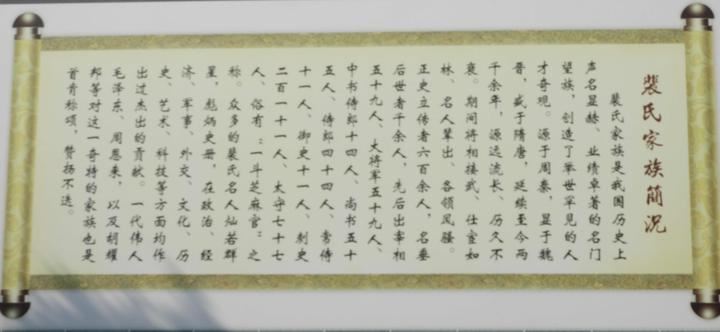 裴氏家族简况
裴氏家族是我国历史上
声名显赫、业绩卓著的名门
望族，创造了举世罕见的人
才奇观。源于周秦，显于魏
晋，盛于隋唐，延续至今两
千余年，源远流长、历久不
衰。期间将相接武、仕宦如
林、名人辈出、各领风骚。
正史立传者六百余人，名垂
后世者千余人，先后出宰相
五十九人、大将军五十九人、
中书侍郎十四人、尚书五十
五人、侍郎四十四人、常侍
十一人、御史十一人、刺史
二百一十一人、太守七十七
人，俗有：“一斗芝麻官”之
称。众多的裴氏名人灿若群
星，彪炳史册，在政治、经
济、军事、外交、文化、历
史、艺术、科技等方面均作
出过杰出的贡献。一代伟人
毛泽东、周恩来，以及胡耀
邦等对这一奇特的家族也是
首肯称颂，赞扬不迭。